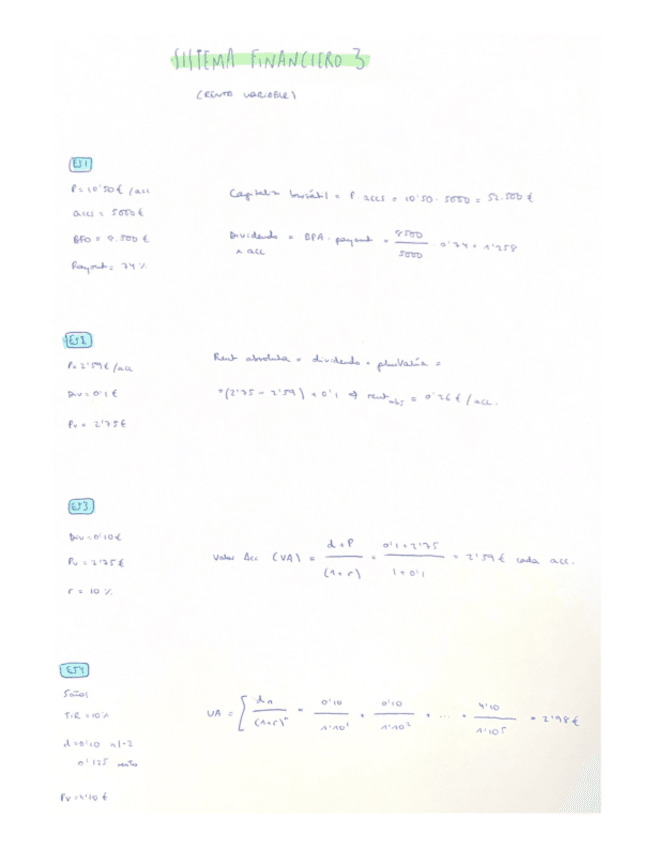 SISTEMA FINANCIERO 3
(RENTA VARIABLE)
EJ1
P = 10'50 € /acc
accs = 5000 €
BFO = 8.500 €
Payout = 74 %
Capitaliz bursátil = P · accs = 10'50 · 5000 = 52.500 €
Dividendo x acc = BPA · payout = 8500 / 5000 · 0'74 = 1'258
EJ2
P = 2'59 € /acc
Div = 0'1 €
Pv = 2'75 €
Rent absoluta = dividendo + plusvalía =
= (2'75 - 2'59) + 0'1 → rent abs = 0'26 € / acc.
EJ3
Div = 0'10 €
Pv = 2'75 €
r = 10 %
Valor Acc (VA) = d + P / (1+r) = 0'1 + 2'75 / 1 + 0'1 = 2'59 € cada acc.
EJ4
5 años
TIR = 10 %
d = 0'10 n 1-2
0'125 resto
Pv = 4'10 €
VA = [ dn / (1+r)^n = 0'10 / 1'10^1 + 0'10 / 1'10^2 + ... + 4'10 / 1'10^5 = 2'98 €